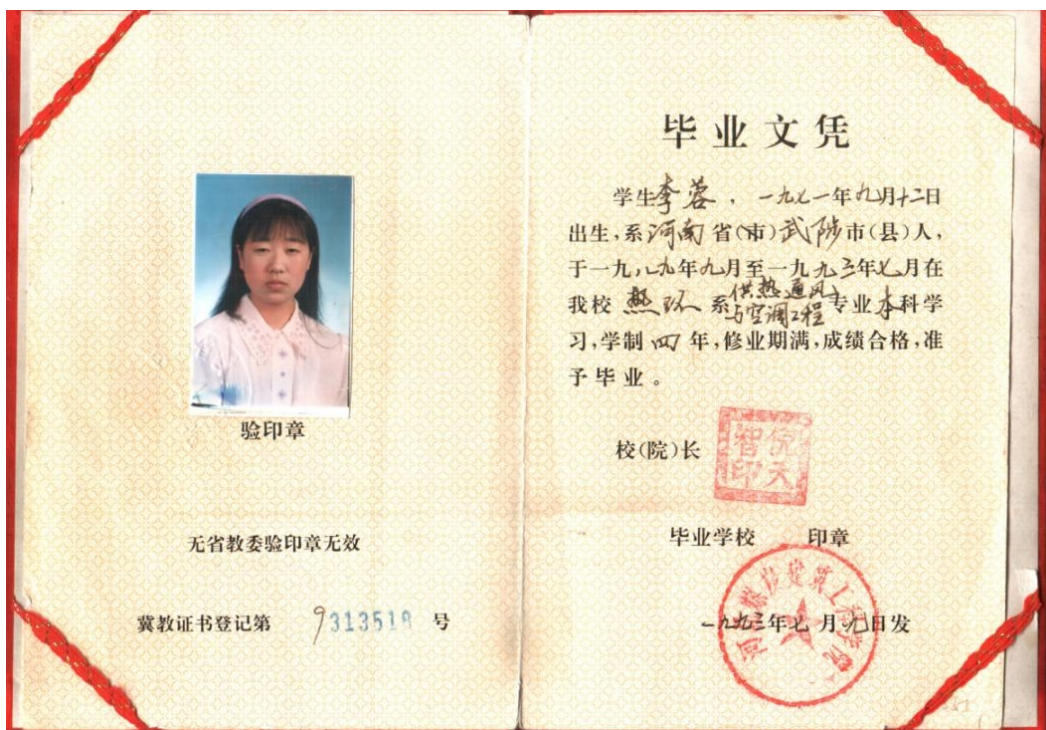 验印章
无省教委验印章无效
冀教证书登记第 9313518 号
毕业文凭
学生李蓉，一九七一年九月十二日
出生，系河南省(市)武陟市(县)人，
于一九八九年九月至一九九三年七月在
我校 热环 系供热通风与空调工程专业本科学
习，学制四年，修业期满，成绩合格，准
予毕业。
校(院)长
倪天智印
毕业学校 印章
河北煤炭建筑工程学院
一九九三年七月九日发